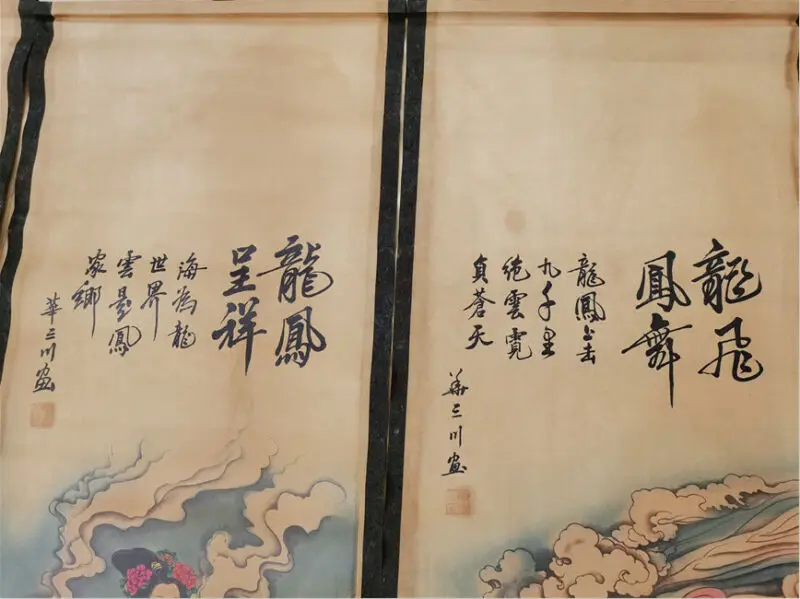 龍飛
鳳舞
龍鳳上击
九千里
绝雲霓
負蒼天
華三川畫
龍鳳
呈祥
海為龍
世界
雲是鳳
家鄉
華三川畫